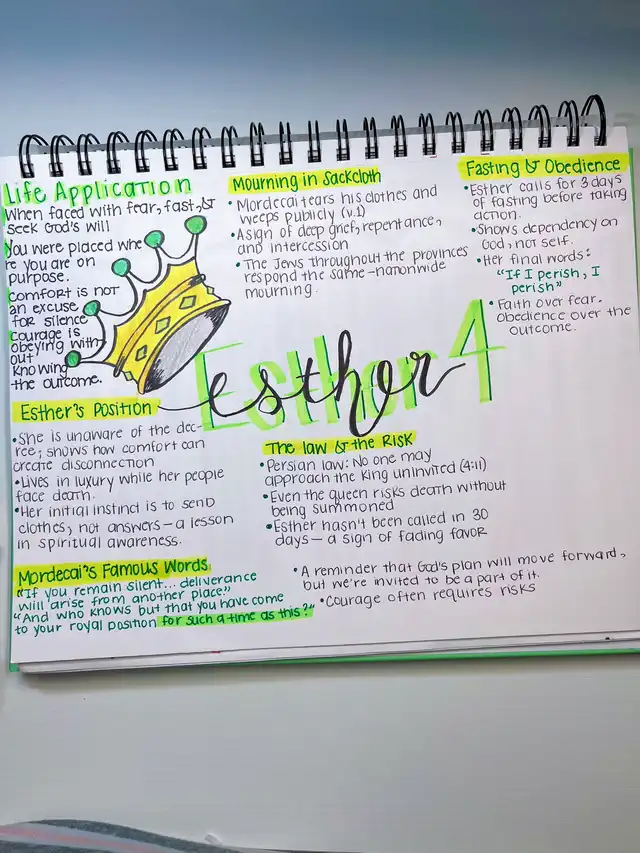 Life Application
When faced with fear, fast, &
seek God's will
You were placed whe
re you are on
purpose.
Comfort is not
an excuse
for silence
Courage is
obeying with
out
knowing
the outcome.
Mourning in Sackcloth
• Mordecai tears his clothes and
weeps publicly (v.1)
• A sign of deep grief, repentance,
and intercession
• The Jews throughout the provinces
respond the same-nationwide
mourning.
Fasting & Obedience
• Esther calls for 3 days
of fasting before taking
action.
• Shows dependency on
God, not self.
• Her final words:
"If I perish, I
perish"
• Faith over fear.
Obedience over the
outcome.
Esther 4
esther
Esther's Position
• She is unaware of the dec-
ree; shows how comfort can
create disconnection
• Lives in luxury while her people
face death.
• Her initial instinct is to send
clothes, not answers—a lesson
in spiritual awareness.
The law & the Risk
• Persian law: No one may
approach the King uninvited (4:11)
• Even the queen risks death without
being summoned
• Esther hasn't been called in 30
days—a sign of fading favor
Mordecai's Famous Words
"If you remain silent... deliverance
will arise from another place"
"And who knows but that you have come
to your royal position for such a time as this?"
• A reminder that God's plan will move forward,
but we're invited to be a part of it.
• Courage often requires risks